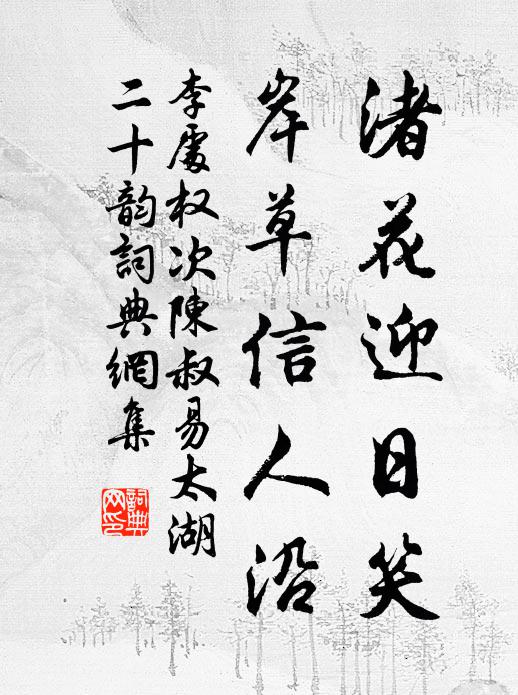 渚花迎日笑
岸草信人沿
李處权次陳叔易太湖
二十韵詞典網集
詞典
网印